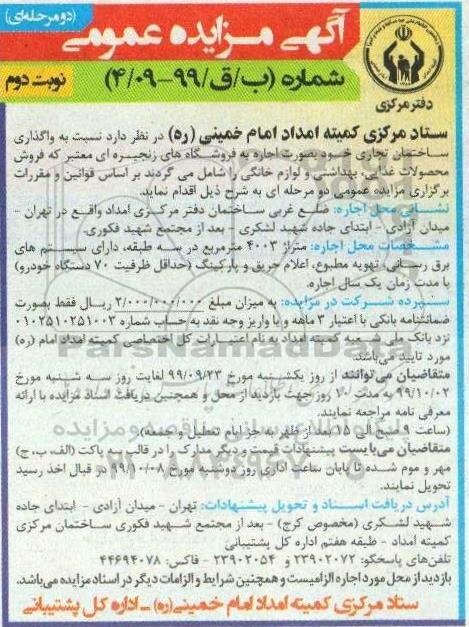 (دو مرحله‌ای)
آگهی مزایده عمومی
شماره (ب/ق/۹۹-۴/۰۹)
نوبت دوم
دفتر مرکزی
ستاد مرکزی کمیته امداد امام خمینی (ره) در نظر دارد نسبت به واگذاری
ساختمان تجاری خود بصورت اجاره به فروشگاه های زنجیره ای معتبر که فروش
محصولات غذایی، بهداشتی و لوازم خانگی را شامل می گردید بر اساس قوانین و مقررات
برگزاری مزایده عمومی دو مرحله ای به شرح ذیل اقدام نماید.
نشانی محل اجاره: ضلع غربی ساختمان دفتر مرکزی امداد واقع در تهران -
میدان آزادی - ابتدای جاده شهید لشکری - بعد از مجتمع شهید فکوری.
مشخصات محل اجاره: متراژ ۴۰۰۳ مترمربع در سه طبقه، دارای سیستم های
برق رسانی، تهویه مطبوع، اعلام حریق و پارکینگ (حداقل ظرفیت ۷۰ دستگاه خودرو)
با مدت زمان یک سال اجاره.
سپرده شرکت در مزایده: به میزان مبلغ ۲/۰۰۰/۰۰۰/۰۰۰ ریال فقط بصورت
ضمانتنامه بانکی با اعتبار ۳ ماهه و یا واریز وجه نقد به حساب شماره ۰۱۰۲۵۱۰۲۵۱۰۰۳
نزد بانک ملی شعبه کمیته امداد به نام اعتبارات کل اختصاصی کمیته امداد امام (ره)
مورد تایید می‌باشد.
متقاضیان می‌توانند از روز یکشنبه مورخ ۹۹/۰۹/۲۳ لغایت روز سه شنبه مورخ
۹۹/۱۰/۰۲ به مدت ۱۰ روز جهت بازدید از محل و همچنین دریافت اسناد مزایده با ارائه
معرفی نامه مراجعه نمایند.
(ساعت ۹ صبح الی ۱۵ بعد از ظهر به جز ایام تعطیل و جمعه)
متقاضیان می‌بایست پیشنهادات قیمت و دیگر مدارک را در قالب سه پاکت (الف، ب، ج)
مهر و موم شده تا پایان ساعت اداری روز دوشنبه مورخ ۹۹/۱۰/۰۸ در قبال اخذ رسید
تحویل نمایند.
آدرس دریافت اسناد و تحویل پیشنهادات: تهران - میدان آزادی - ابتدای جاده
شهید لشگری (مخصوص کرج) - بعد از مجتمع شهید فکوری ساختمان مرکزی
کمیته امداد - طبقه هفتم اداره کل پشتیبانی
تلفن‌های پاسخگو: ۲۳۹۰۲۰۷۲ و ۲۳۹۰۲۰۵۴ - فاکس: ۴۴۶۹۴۰۷۸
بازدید از محل مورد اجاره الزامیست و همچنین شرایط و الزامات دیگر در اسناد مزایده می‌باشد.
ستاد مرکزی کمیته امداد امام خمینی (ره) - اداره کل پشتیبانی